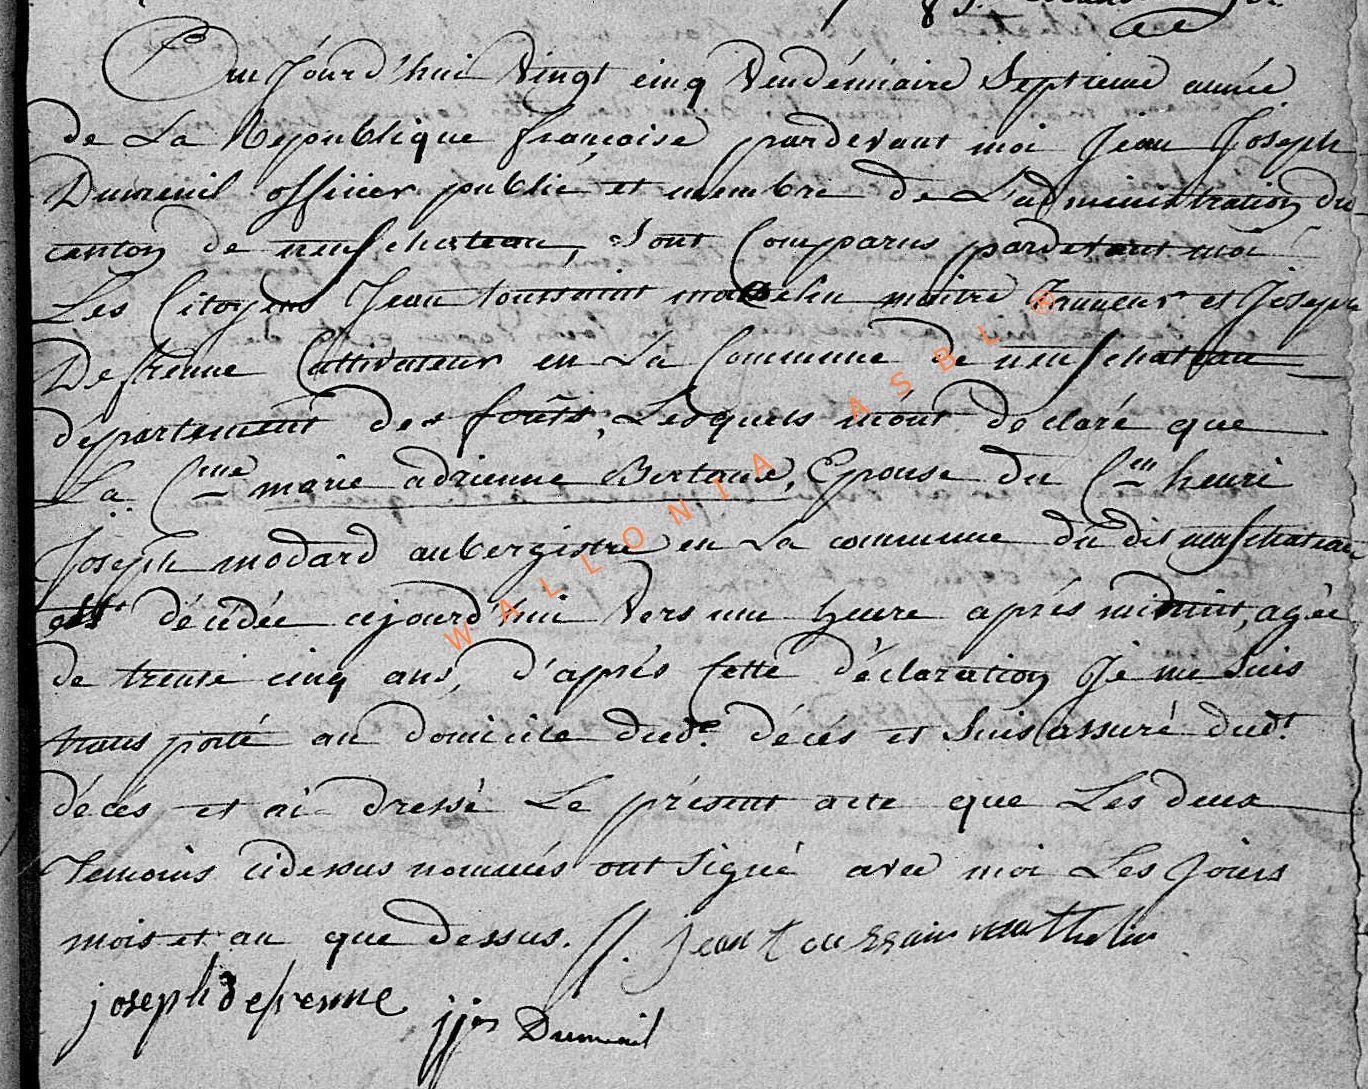 Au Jourd'hui vingt cinq vendémiaire Septieme année
de La Republique françoise pardevant moi Jean Joseph
Dumenil officier public et membre de L'administration du
canton de neufchateau, Sont Comparus pardevant moi
Les Citoyens Jean toussaint mathelin maitre tanneur et Joseph
Defrenne Cultivateur en La Commune de neufchateau
département des forêts, Lesquels m'ont déclaré que
La Cnne marie adrienne Bertaux, Epouse du Cen henri
Joseph modard aubergistre en La commune du dit neufchateau
est décédée ajourd'hui vers une heure après minuit, agée
de trente cinq ans, d'après Cette déclaration Je me Suis
transporté au domicile dudt décés et Suis assuré dudt
décés et ai dressé Le présent acte que Les deux
temoins cidessus nommés ont Signé avec moi Les Jours
mois et an que dessus. //. jean toussain mathelin
joseph defrenne jjos Dumenil
WALLONIA ASBL ®